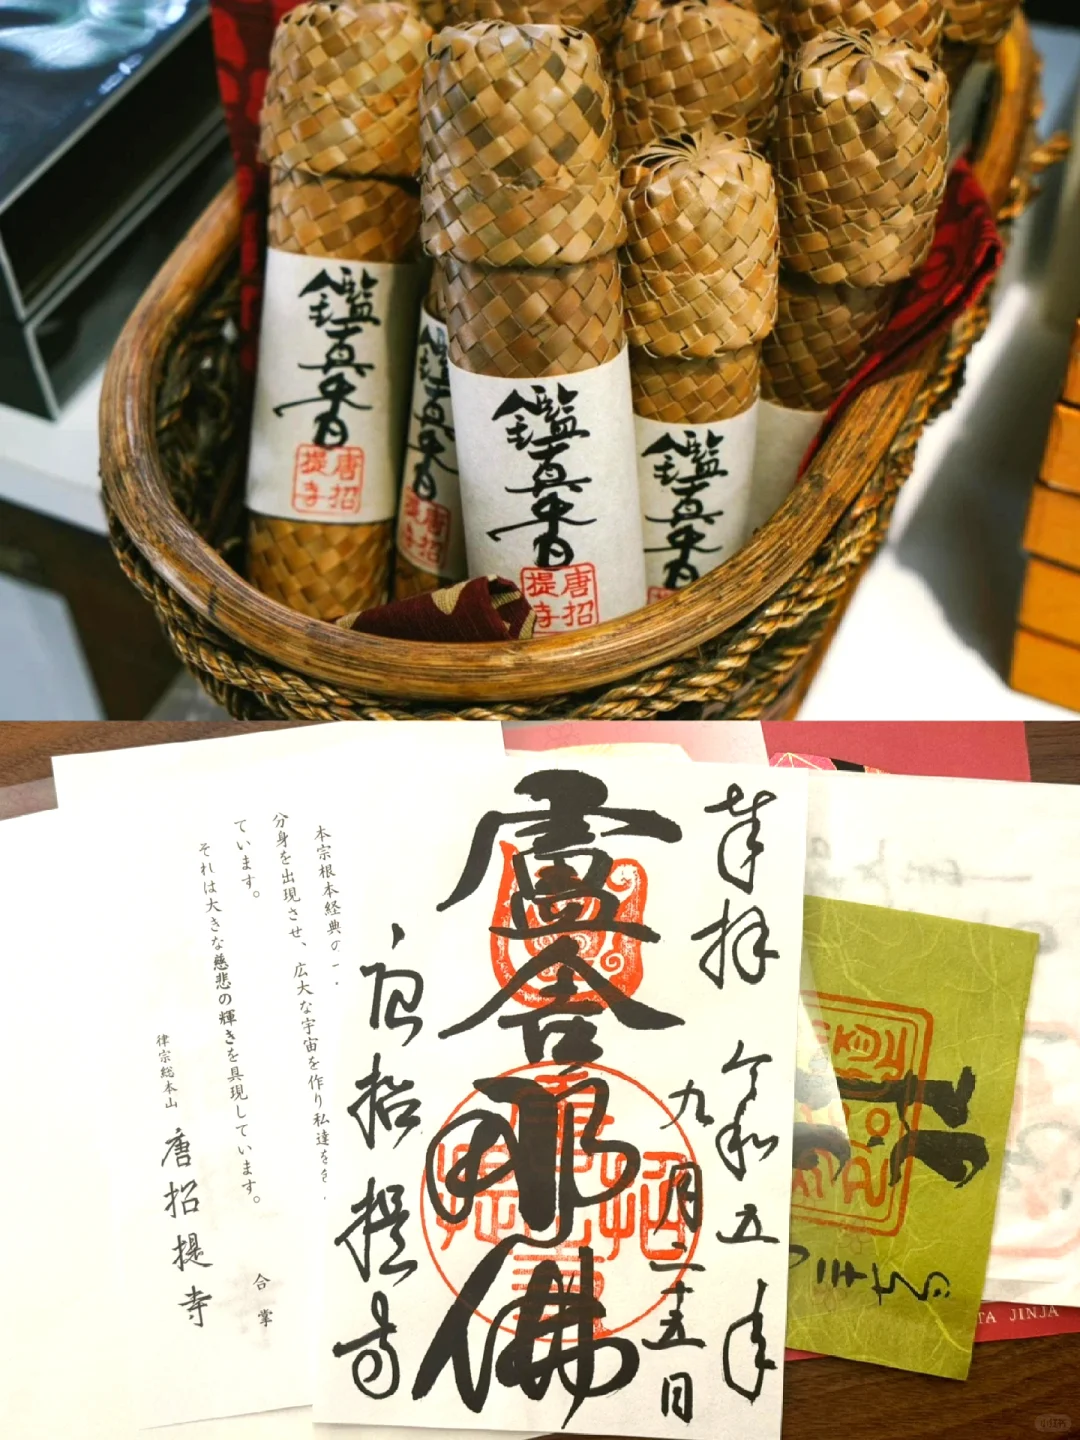 鑑真香
唐招提寺
鑑真香
唐招
鑑真香
唐招提寺
鑑真香
奉拝
令和五年
九月二十五日
盧舎那佛
唐招提寺
本宗根本経典の
分身を出現させ、広大な宇宙を作り私達を
ています。
それは大きな慈悲の輝きを具現しています。
合掌
律宗総本山 唐招提寺
TA JINJA
小红书